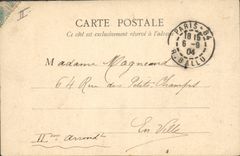 II
CARTE POSTALE
Ce côté est exclusivement réservé à l'adresse
PARIS-84
18 15
6-9
04
R. BALLU
Madame Magneand
64 Rue des Petits-Champs
En Ville
IIème arrondt